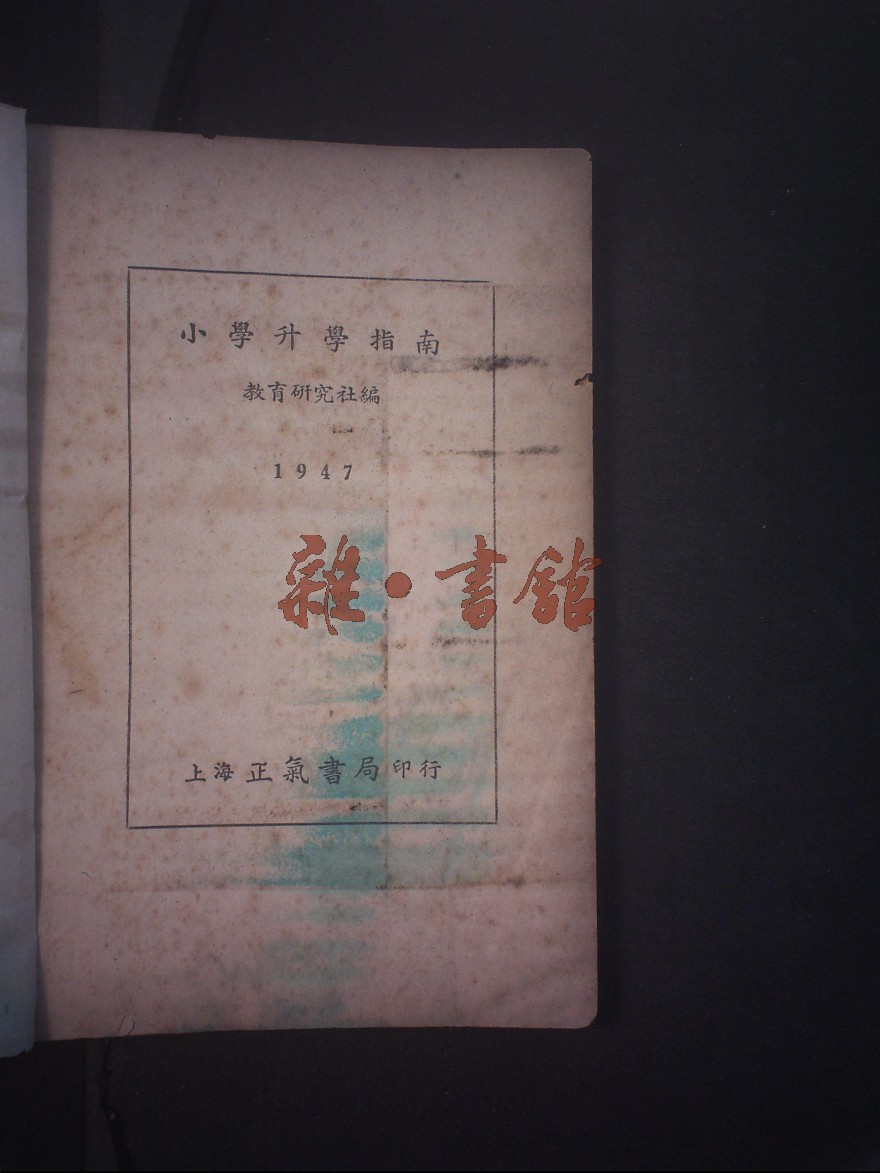 小學升學指南
教育研究社編
1947
雜·書館
上海正氣書局印行